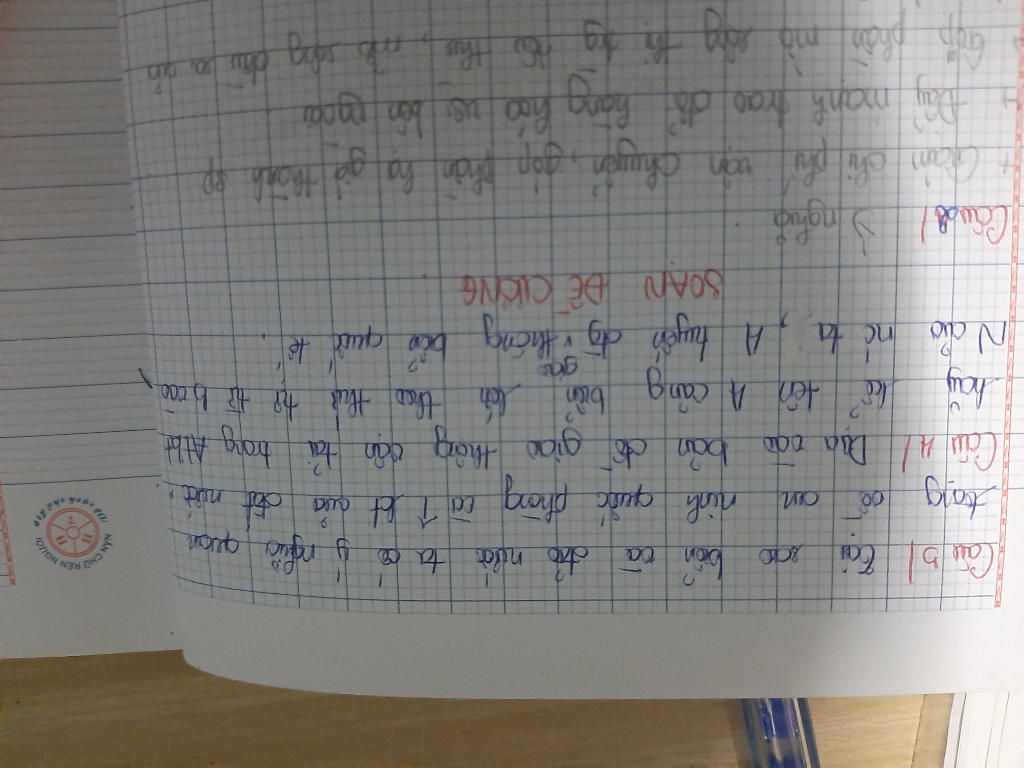 Câu 3/ Tại sao biển và đảo nước ta có ý nghĩa quan
trọng về an ninh quốc phòng và ↑ kt của đất nước.
Câu 4/ Dựa vào bản đồ giao thông vận tải trong Atlat
hãy kể tên 1 cảng biển lớn theo thứ tự từ b vào
N của nc ta, 1 tuyến đg giao thông biển quốc tế.
SOẠN ĐỀ CƯƠNG
Câu 1/ Ý nghĩa:
+ Giảm chi phí vận chuyển, góp phần hạ giá thành sp
+ Đẩy mạnh trao đổi hàng hóa với bên ngoài
+ Góp phần mở rộng thị trg tiêu thụ, mở rộng
NÉT CHỮ RÈN NGƯỜI